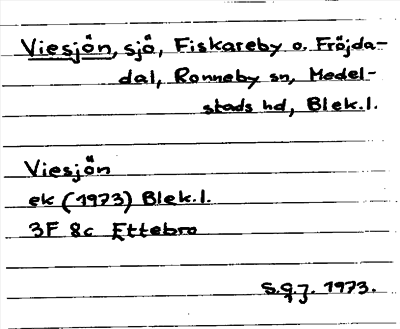 Viesjön, sjö, Fiskareby o. Fröjda-
dal, Ronneby sn, Medel-
stads hd, Blek.l.
Viesjön
ek (1973) Blek.l.
3F 8c Ettebro
S.G.J. 1973.